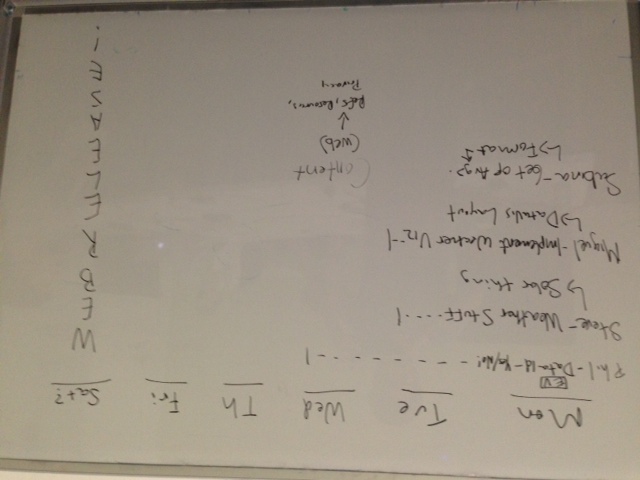 Mon Tue Wed Th Fri Sat?
EV
Phil - Data Id - Yes/No! - - - - - - - - |
Steve - Weather Stuff - - - - |
↳ Solar thing
Miguel - Implement Weather V12 - - |
↳ DataVis Layout
Get op Avgs.
↳ Format
Content
(web)
↓
Refs, Resources,
Privacy
W
E
B
R
E
L
E
A
S
E
!